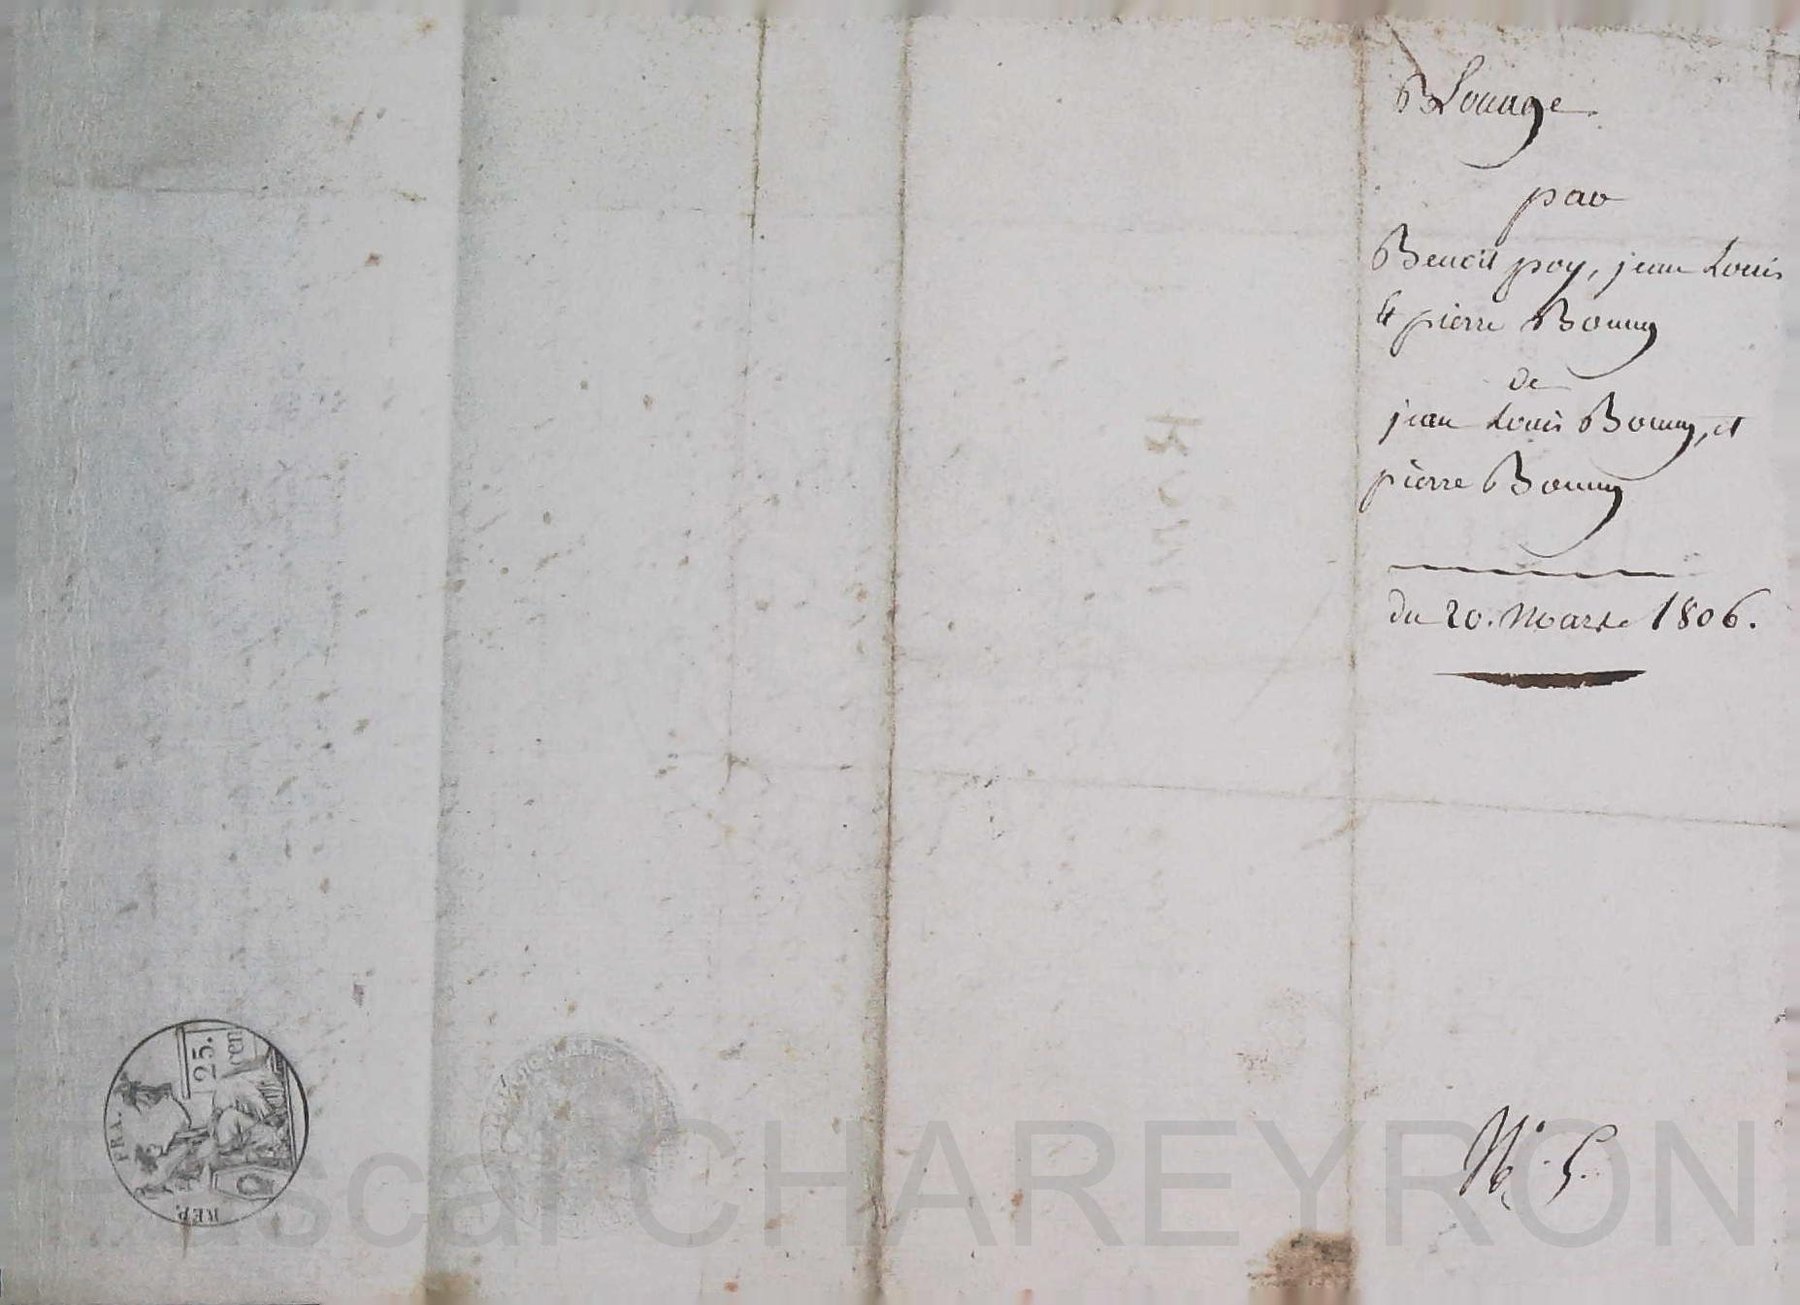 Louage
par
Benoit poy, jean Louis
et pierre Bonny
de
jean Louis Bonny, et
pierre Bonny
du 20. Mars 1806.
N° 5.
REP. FRA.
25.
cen
Pascal CHAREYRON